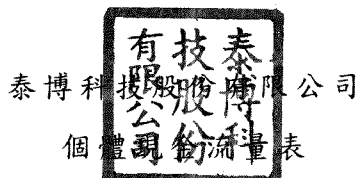 泰博科技股份有限公司
個體現金流量表
泰博科
技股份
有限公司